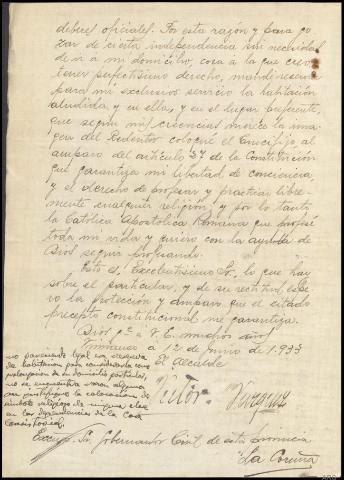 deberes oficiales. Por esta razón y para go
zar de cierta independencia sin necesidad
de ir a mi domicilio, cosa a la que creo
tener perfectísimo derecho, mandé reservar
para mi exclusivo servicio la habitación
aludida y en ella, y en el lugar preferente,
que según mis creencias merece la ima
gen del Redentor coloqué el Crucifijo, al
amparo del artículo 27 de la Constitución
que garantiza mi libertad de conciencia,
y el derecho de profesar y practicar libre-
mente cualquier religión, y por lo tanto
la Católica Apostólica Romana que profesé
toda mi vida y quiero con la ayuda de
Dios seguir profesando.
Esto es, Excelentísimo Sr, lo que hay
sobre el particular, y de su rectitud espe
ro la protección y amparo que el citado
precepto constitucional me garantiza.
Dios gª a V.E. muchos años
a 12 de junio de 1.933
El Alcalde
Víctor Vázquez
no pareciendo legal con
de habitación para considerarla como
prolongación de domicilio particular,
no se encuentra razón alguna
que justifique la colocación de
símbolo religioso de ninguna clase
en las dependencias de la Casa
Consistorial
Excmo. Sr. Gobernador Civil de esta provincia
La Coruña